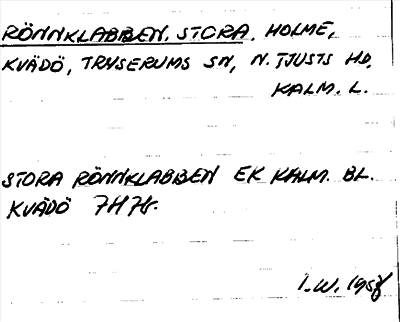 RÖNNKLABBEN, STORA, HOLME,
KVÄDÖ, TRYSERUMS SN, N. TJUSTS HD,
KALM. L.
STORA RÖNNKLABBEN EK KALM. BL.
KVÄDÖ 7H7h.
I.W. 1958